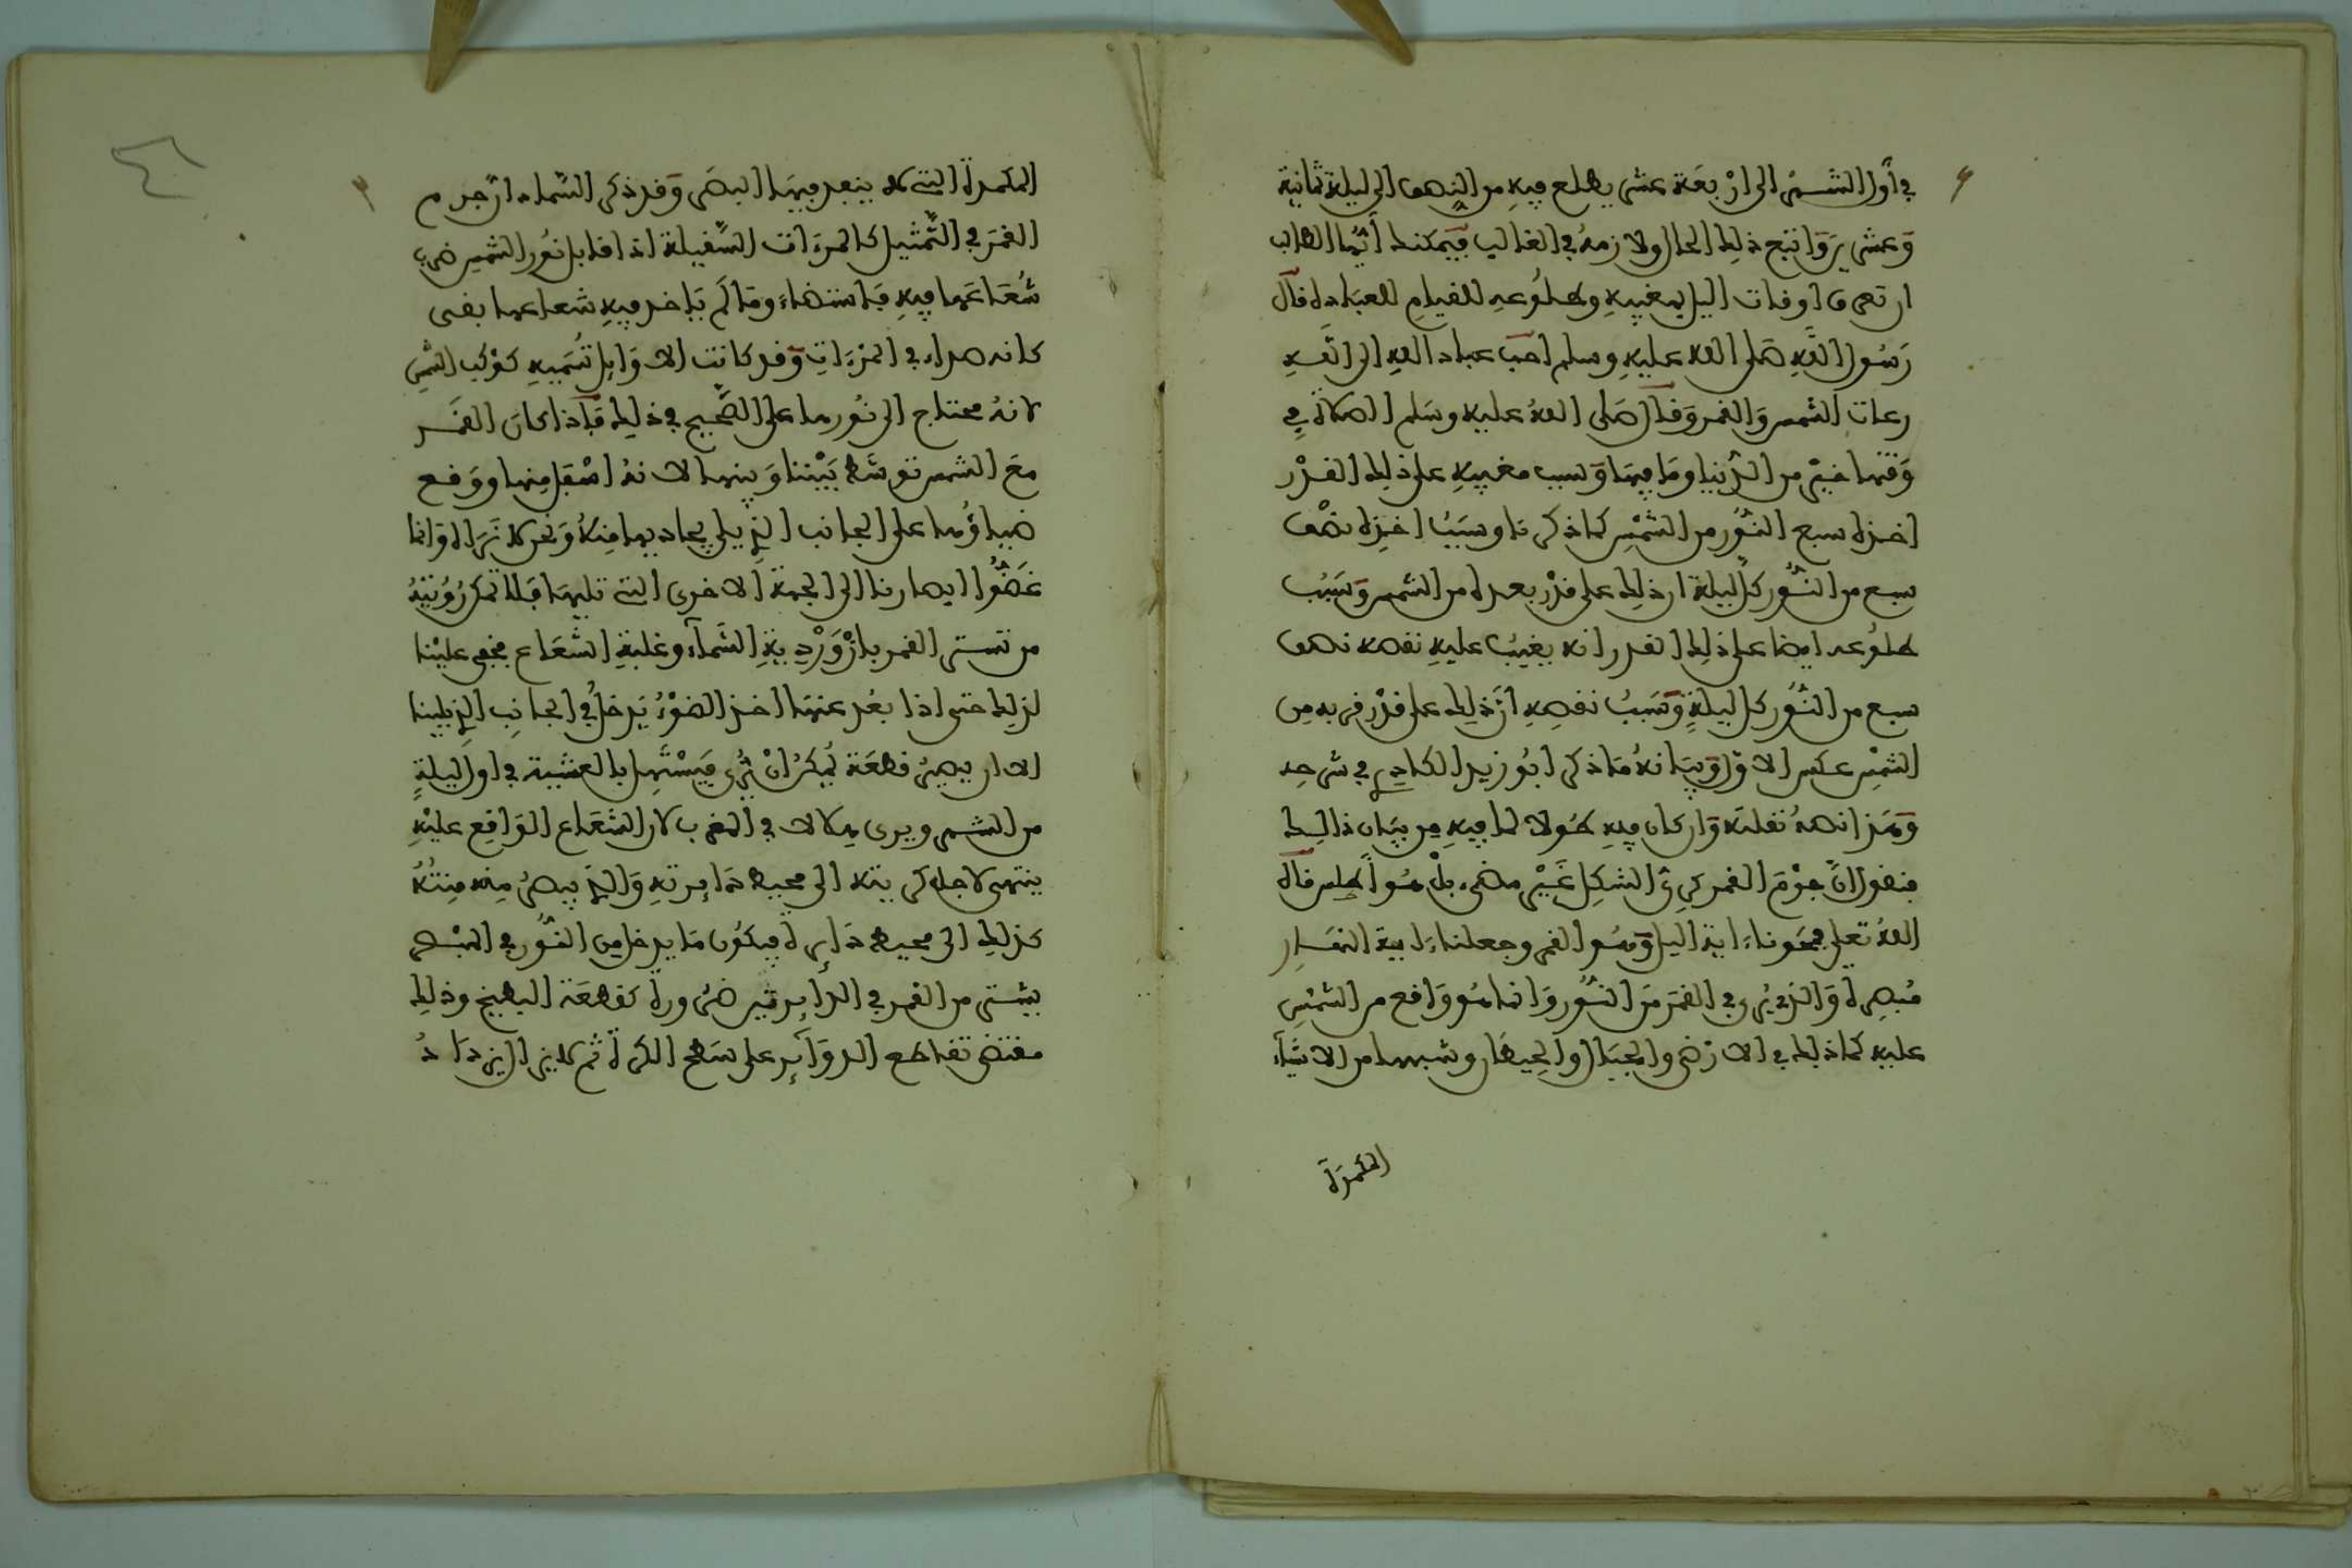 في أول الشهر الى اربعة عشر يطلع فيه من النصف الى ليلة ثمانية
وعشرين وانتج ذلك الحال ولازمه في الغالب فيمكنك ايها الطالب
ان تعرف اوقات اليل بمغيبه وطلوعه للقيام للعبادة قال
رسول الله صلى الله عليه وسلم احب عباد الله الى الله
رعات الشمس والقمر وقال صلى الله عليه وسلم الصلاة في
وقتها خير من الدنيا وما فيها وسبب مغيبه على ذلك القدر
اخذه سبع النور من الشمس كما ذكرنا وسبب اخذه نصف
سبع من النور كل ليلة ان ذلك على قدر بعده من الشمس وسبب
طلوعه ايضا على ذلك القدر انه يغيب عليه نقصه نصف
سبع من النور كل ليلة وسبب نقصه ان ذلك على قدر قربه من
الشمس عكس الاول وبيانه ما ذكر ابو زيد الكادي في شرحه
وهذا نصه نقلته وان كان فيه طولا لما فيه من بيان ذالك
فنقول ان جرم القمر كري الشكل غير مضيء بل هو اطلس قال
الله تعلى فمحونا ءاية اليل وهو القمر وجعلنا ءاية النهار
مبصرة والذي يرى في القمر من النور وانما هو واقع من الشمس
عليه كما ذلك في الارض والجبال والحيطان وشبهها من الاشياء
المكمدة
المكمدة التي لا ينفد فيها البصر وقد ذكر الشماد ان جرم
القمر في التمثيل كالمرءات السقيلة اذا قابل نور الشمس ضرب
شعاعها فيه فاستضاء وما لم ياخذ فيه شعاعها بقى
كانه صداء في المرءات وقد كانت الاوايل تسميه كوكب الشمس
لانه محتاج الى نورها على الصحيح في ذلك فإذا كان القمر
مع الشمس توسط بيننا وبينها لانه اسفل منها ووقع
ضياؤها على الجانب الذي يلي يحاديها منه ونحن لا نراه وانما
غضوا ابصارنا الى الجهة الاخرى التي تليها فلا تمكن رؤيته
من تستر القمر بازوردية السماء وغلبة الشعاع فخفي علينا
لذلك حتى اذا بعد عنها اخذ الضوء يدخل في الجانب الذي يلينا
الى ان يصير قطعة يمكن ان ترى فيستهل بالعشية في اول ليلة
من الشهر ويرى هلالا في المغرب لان الشعاع الواقع عليه
ينتهى لاجل كريته الى محيط دايرته والذي يبصر منه منته
كذلك الى محيط دايرة فيكون ما يدخل من النور في المبصر
بيستر من القمر في الدايرتين ضرورة كقطعة البطيخ وذلك
مقتضى تقاطع الدوآير على سطح الكرة ثم لا يزال يزداد